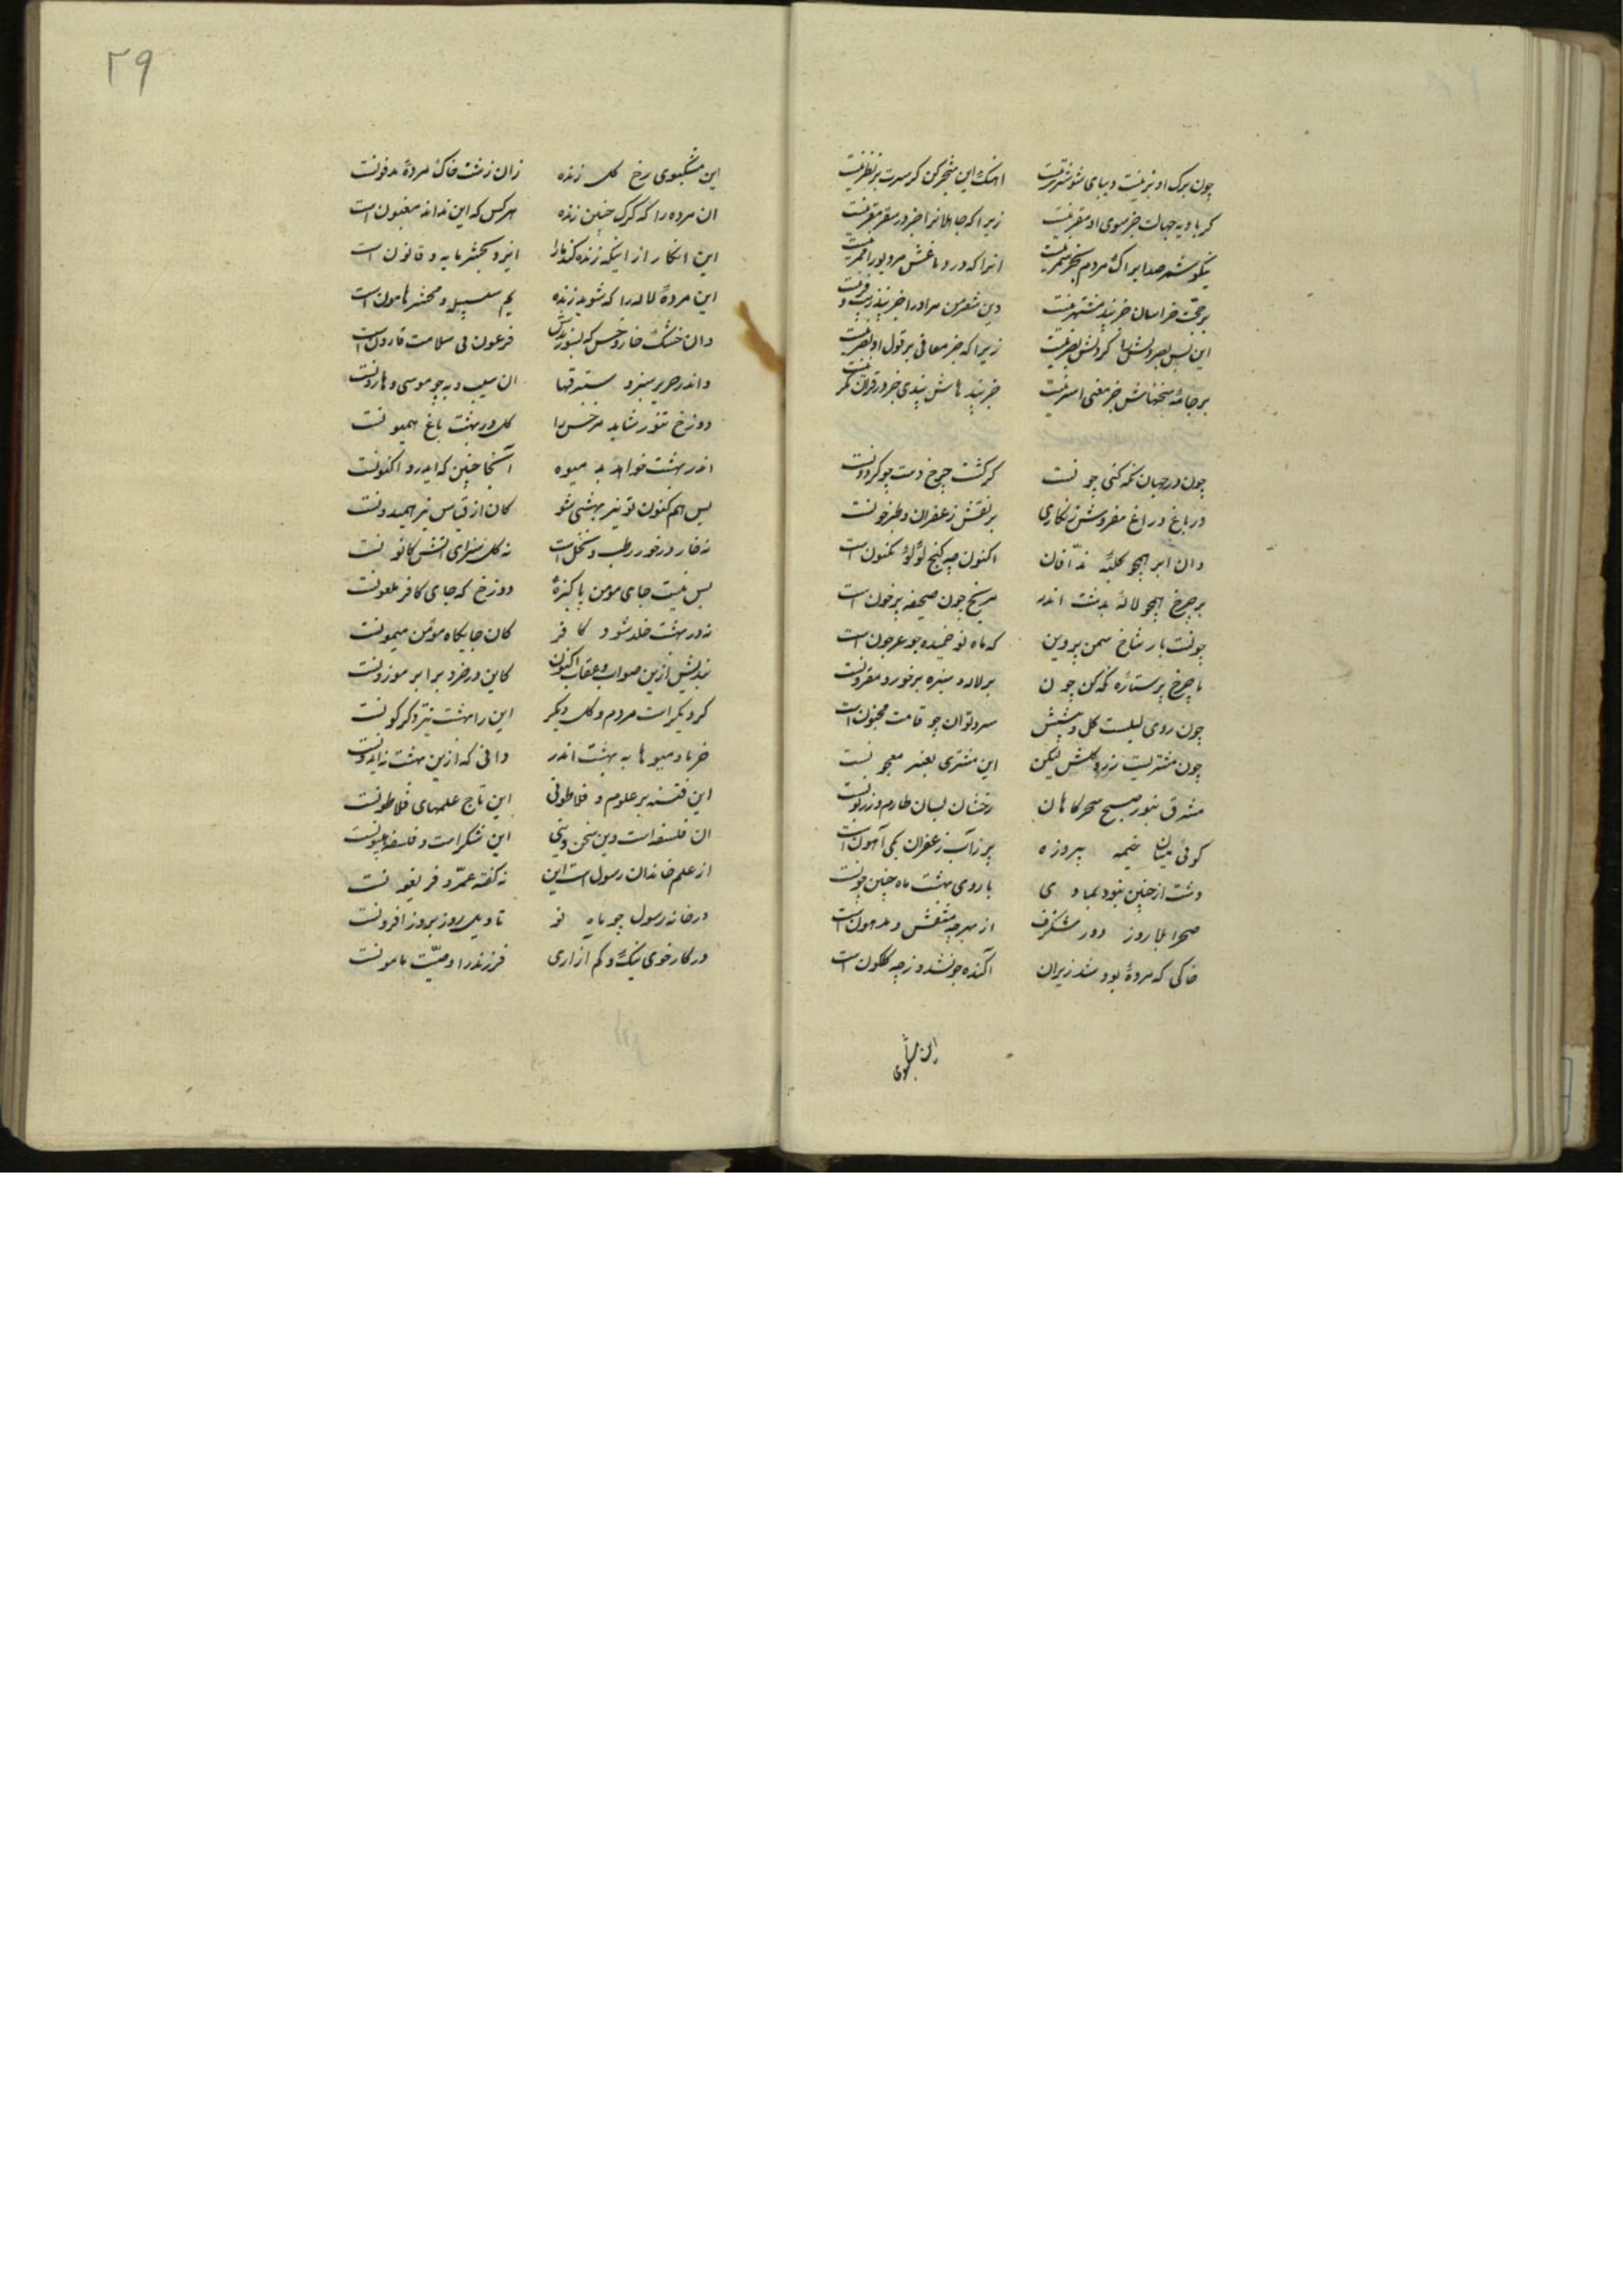 چون برک او بزینت و دیبای شوشتریست    اهنک این شجر کن کرسرت پر نظر نیست
کر بادیه جهالت جز سوی او مقر نیست    زیرا که جاهلانرا جز در سقر مقر نیست
نیکو شمر صدا برا ک مردم بجز ثمر نیست    انرا که در دماغش مر دیو را ممر نیست
بر حجت خراسان جز پند مشتهر نیست    وین شعر من مراورا جز پند زیب و فر نیست
این بس بصر دلش را کردلش بصر نیست    زیرا که جز معانی بر قول او بصر نیست
بر جامهٔ سخنهاش جز معنی استر نیست    جز پند هاش پندی جز در قران مکر نیست
چون در جهان نکه نکنی چونست    کز کشت چرخ دست چو کردونست
در باغ و راغ مفرش زنکاری    پر نقش زعفران و طبرخونست
وان ابر همچو کلبه ندافان    اکنون چو کنج لؤلؤ مکنون است
بر چرخ همچو لاله بدشت اندر    مریخ چون صحیفه پرخون است
چونست بار شاخ سمن پروین    که ماه نو خمیده چو عرجون است
با چرخ پر ستاره نکه کن چون    بر لاله و سبزه بر خورد مقرونست
چون روی لیلیست کل و پیشش    سرو نوان چو قامت مجنون است
چون مشتریست زرد کلش لیکن    این مشتری بعنبر معجونست
مشرق بنور صبح سحرکاهان    رخشان بسان طارم زریونست
کوئی میان خیمه پیروزه    پر زاب زعفران یکی آهون است
دشت ار چنین نبود بماه دی    با روی بهشت ماه چنین چونست
صحرا بلا روز دور شنکرف    از بهر چه منقش و مدهون است
خاکی که مردهٔ بود شد زیران    آکنده چون شد و ز چه کلکون است
این مشکبوی
۲۹
این مشکبوی رخ کل زنده    زان زشت خاک مردهٔ مدفونست
ان مرده را که کرد چنین زنده    هر کس که این نداند مغبون است
این انکار از اینکه زنده کند مارا    ایزد بحشر مایه و قانون است
این مردهٔ لاله را که شود زنده    نم سلسبیل و محشر هامون است
وان خشک خار و خس که بسوزندش    فرعون بی سلامت قارون است
و اندر حریر سبز و ستبرقها    ان سیب و به چو موسی و هارونست
دوزخ تنور شاید مر خس را    کل در بهشت باغ همیدونست
اندر بهشت خواهد بد میوه    آنجا چنین که ایدر و اکنونست
پس هم کنون تو نیز بهشتی شو    کان از قیاس نیز همیدونست
نه خار در خور رطب و نخل است    نه کل سزای اتش کانونست
پس نیست جای مومن پاکیزه    دوزخ که جای کافر ملعونست
نه در بهشت خلد شود کافر    کان جایکاه مؤمن میمونست
بندیش ازین صواب و عقاب اکنون    کاین در خرد برابر موزونست
کر دیکر است مردم و کل دیکر    این را بهشت نیز دکر کونست
خرما و میوها به بهشت اندر    دانی که ازین بهشت نه ایدونست
این فتنه بر علوم و فلاطونی    این تاج علمهای فلاطونست
ان فلسفه است وین سخن دینی    این شکر است و فلسفه هپیونست
از علم خاندان رسول است این    نه کفته عمرو و فریغونست
در خانه رسول چو ماه نو    تاویل روز بروز افزونست
در کار خوی نیک و کم آزاری    فرزند را وصیت مامونست